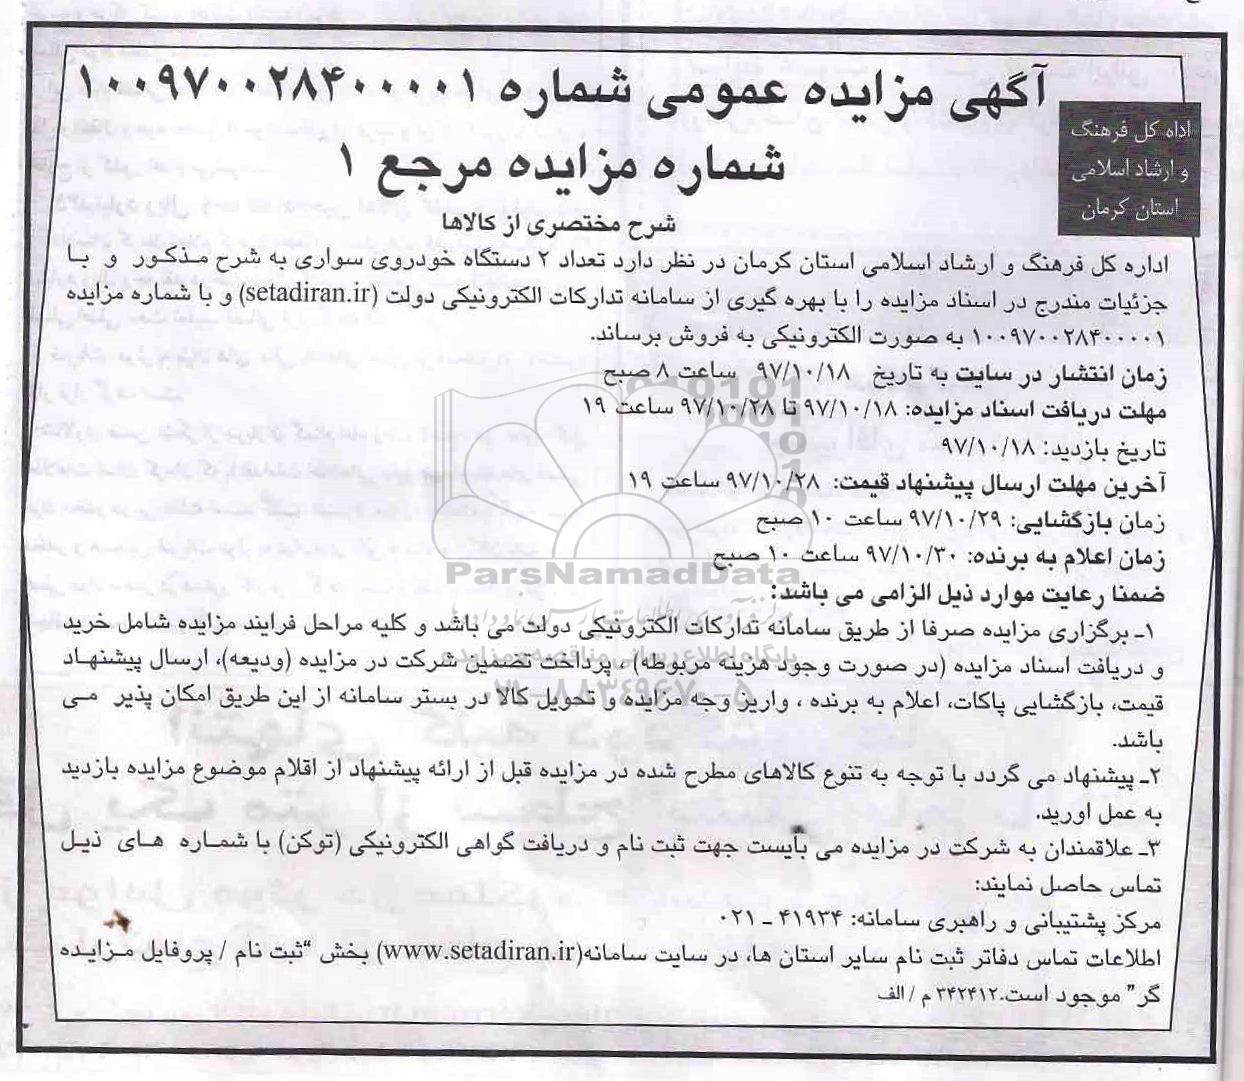 آگهی مزایده عمومی شماره ۱۰۰۹۷۰۰۲۸۴۰۰۰۰۱
شماره مزایده مرجع ۱
اداه کل فرهنگ
و ارشاد اسلامی
استان کرمان
شرح مختصری از کالاها
اداره کل فرهنگ و ارشاد اسلامی استان کرمان در نظر دارد تعداد ۲ دستگاه خودروی سواری به شرح مذکور و با
جزئیات مندرج در اسناد مزایده را با بهره گیری از سامانه تدارکات الکترونیکی دولت (setadiran.ir) و با شماره مزایده
۱۰۰۹۷۰۰۲۸۴۰۰۰۰۱ به صورت الکترونیکی به فروش برساند.
زمان انتشار در سایت به تاریخ ۹۷/۱۰/۱۸ ساعت ۸ صبح
مهلت دریافت اسناد مزایده: ۹۷/۱۰/۱۸ تا ۹۷/۱۰/۲۸ ساعت ۱۹
تاریخ بازدید: ۹۷/۱۰/۱۸
آخرین مهلت ارسال پیشنهاد قیمت: ۹۷/۱۰/۲۸ ساعت ۱۹
زمان بازگشایی: ۹۷/۱۰/۲۹ ساعت ۱۰ صبح
زمان اعلام به برنده: ۹۷/۱۰/۳۰ ساعت ۱۰ صبح
ParsNamadData
ضمنا رعایت موارد ذیل الزامی می باشد:
۱ـ برگزاری مزایده صرفا از طریق سامانه تدارکات الکترونیکی دولت می باشد و کلیه مراحل فرایند مزایده شامل خرید
و دریافت اسناد مزایده (در صورت وجود هزینه مربوطه) ، پرداخت تضمین شرکت در مزایده (ودیعه)، ارسال پیشنهاد
قیمت، بازگشایی پاکات، اعلام به برنده ، واریز وجه مزایده و تحویل کالا در بستر سامانه از این طریق امکان پذیر می
باشد.
۲ـ پیشنهاد می گردد با توجه به تنوع کالاهای مطرح شده در مزایده قبل از ارائه پیشنهاد از اقلام موضوع مزایده بازدید
به عمل اورید.
۳ـ علاقمندان به شرکت در مزایده می بایست جهت ثبت نام و دریافت گواهی الکترونیکی (توکن) با شماره های ذیل
تماس حاصل نمایند:
مرکز پشتیبانی و راهبری سامانه: ۴۱۹۳۴ - ۰۲۱
اطلاعات تماس دفاتر ثبت نام سایر استان ها، در سایت سامانه(www.setadiran.ir) بخش “ثبت نام / پروفایل مزایده
گر” موجود است.۳۴۲۴۱۲ م / الف